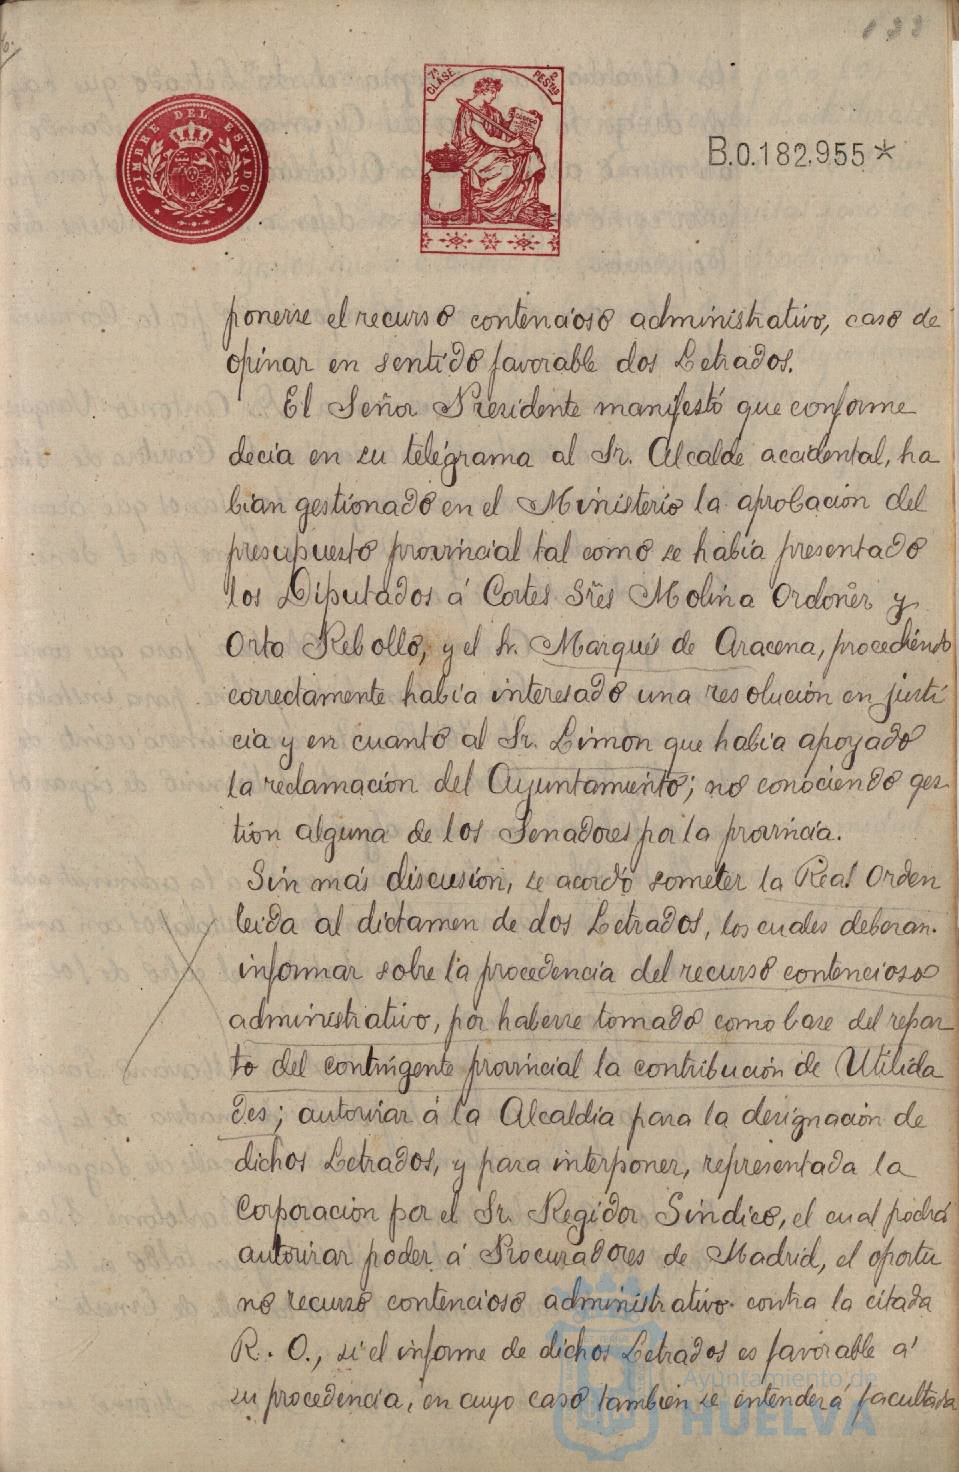 133
7ª CLASE
2 PESTAS
TIMBRE DEL ESTADO
B.0.182.955*
ponerse el recurso contencioso administrativo, caso de
opinar en sentido favorable dos Letrados.
El Señor Presidente manifestó que conforme
decia en su telégrama al Sr. Alcalde accidental, ha
bian gestionado en el Ministerio la aprobación del
presupuesto provincial tal como se habia presentado
los Diputados á Cortes Sres Molina Ordoñez y
Orta Rebollo, y el Sr. Marqués de Aracena, procediéndo
correctamente habia interesado una resolución en justi
cia y en cuanto al Sr. Limon que habia apoyado
la reclamación del Ayuntamiento; no conociendo ges
tion alguna de los Senadores por la provincia.
Sin más discusión, se acordó someter la Real Orden
leida al dictamen de dos Letrados, los cuales deberan
informar sobre la procedencia del recurso contencioso
administrativo, por haberse tomado como base del repar
to del contingente provincial la contribución de Utilida
des; autorizar á la Alcaldia para la designación de
dichos Letrados, y para interponer, representada la
Corporación por el Sr. Regidor Síndico, el cual podrá
autorizar poder á Procuradores de Madrid, el oportu
no recurso contencioso administrativo contra la citada
R. O., si el informe de dichos Letrados es favorable á
su procedencia, en cuyo caso tambien se entenderá facultada
Ayuntamiento de
HUELVA